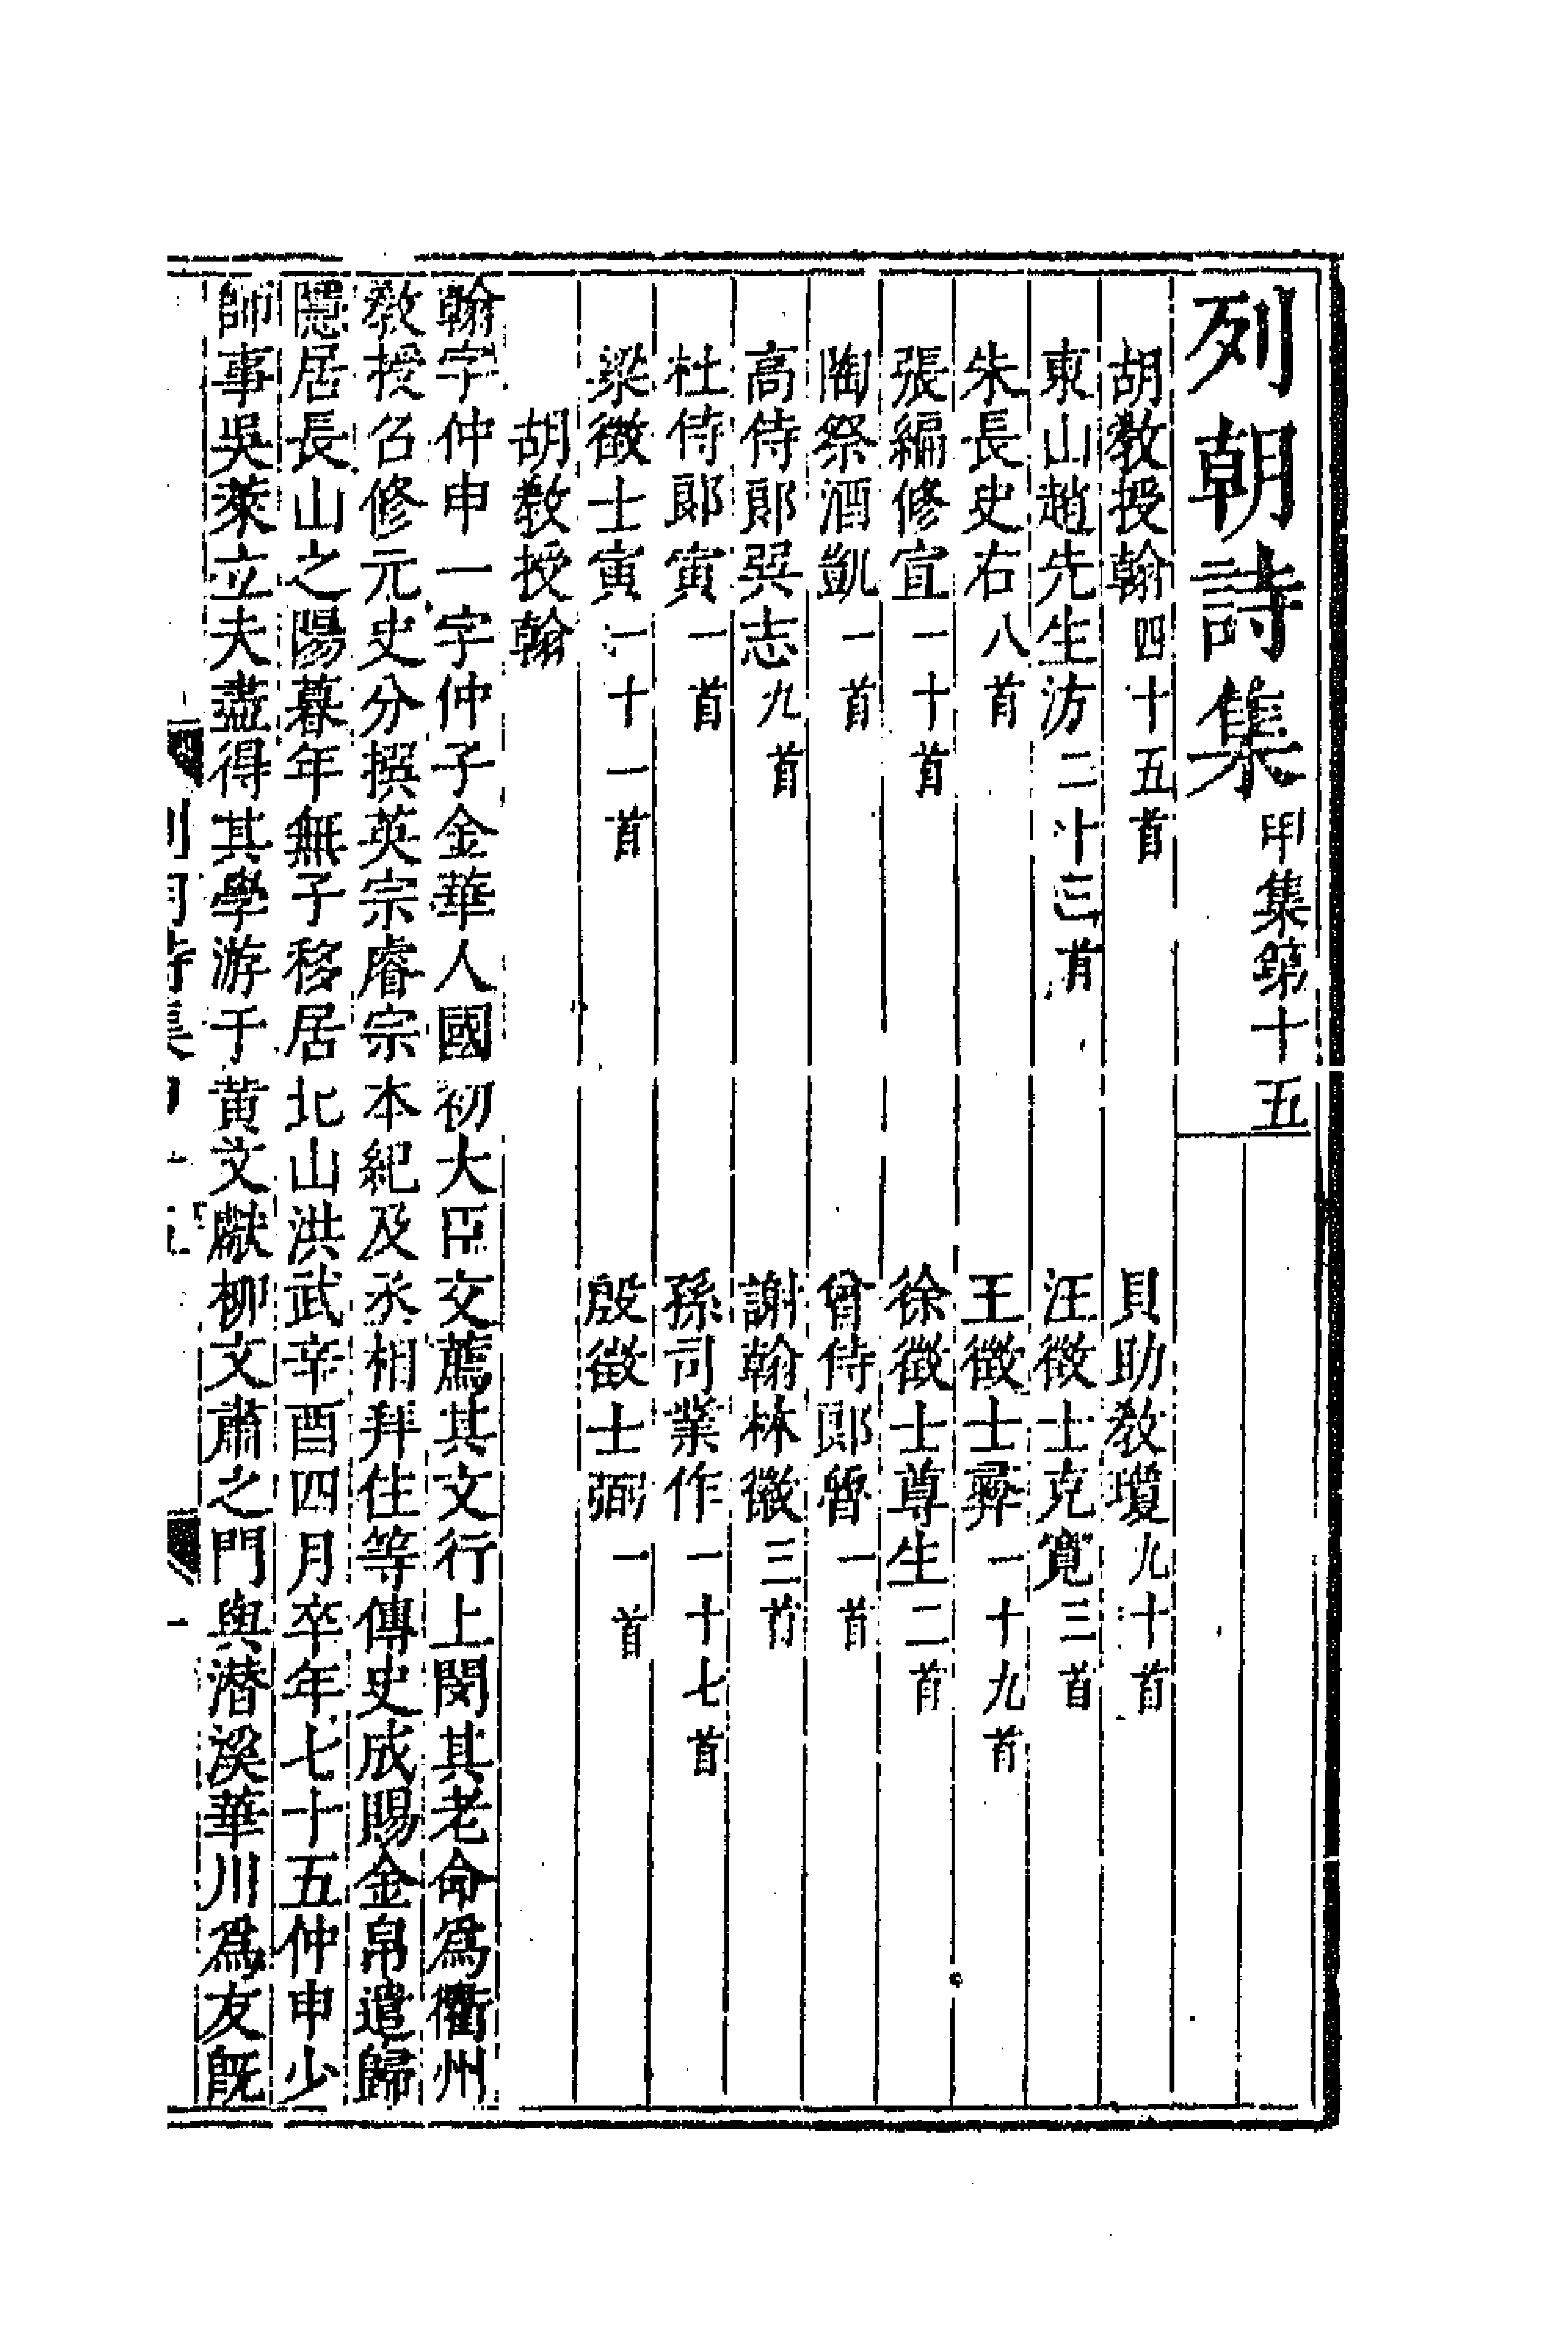 列朝詩集甲集第十五
胡教授翰四十五首　貝助教瓊九十首
東山趙先生汸二十三首　汪徵士克寬三首
朱長史右八首　王徵士彞一十九首
張編修宣一十首　徐徵士尊生二首
陶祭酒凱一首　曾侍郎魯一首
高侍郎㢲志九首　謝翰林徽三首
杜侍郎寅一首　孫司業作一十七首
梁徵士寅一十一首　殷徵士弼一首
胡教授翰
翰字仲申一字仲子金華人國初大臣交薦其文行上閔其老命爲衢州
教授召修元史分撰英宗睿宗本紀及丞相拜住等傳史成賜金帛遣歸
隱居長山之陽暮年無子移居北山洪武辛酉四月卒年七十五仲申少
師事吳萊立夫盡得其學游于黃文獻柳文肅之門與潛溪華川爲友旣